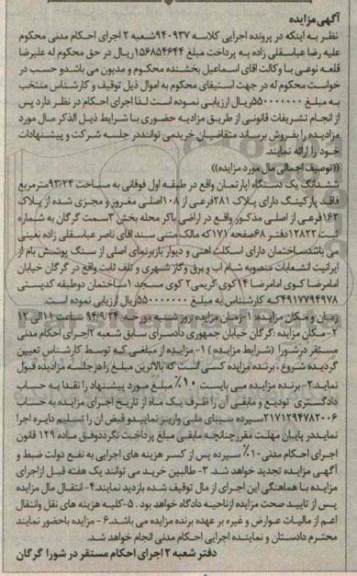 آگهی مزایده
نظر به اینکه در پرونده اجرایی کلاسه ۹۴۰۹۳۷شعبه ۲ اجرای احکام مدنی محکوم
علیه رضا عباسقلی زاده به پرداخت مبلغ ۱۵۶۸۵۴۶۴۴ریال در حق محکوم له علیرضا
قلعه نوعی با وکالت اقای اسماعیل بخشنده محکوم و مدیون می باشدو حسب در
خواست محکوم له در جهت استیفای محکوم به اموال ذیل توقیف و کارشناس منتخب
به مبلغ ۵۵۰۰۰۰۰۰۰ریال ارزیابی نموده است لذا اجرای احکام در نظر دارد پس
از انجام تشریفات قانونی از طریق مزایده حضوری با شرایط ذیل الذکر سال مورد
مزایده را بفروش برساند متقاضیان خریدمی توانند در جلسه شرکت و پیشنهادات
خود را ارائه نمایند
((توصیف اجمالی مال مورد مزایده))
ششدانگ یک دستگاه اپارتمان واقع در طبقه اول فوقانی به مساحت ۹۳/۲۴مترمربع
فاقد پارکینگ دارای پلاک ۲۸۱فرعی از ۱۰۸اصلی مفروز و مجزی شده از پلاک
۱۶۲فرعی از اصلی مذکور واقع در اراضی باکر محله بخش ۳سمت گرگان به شماره
ثبت ۱۲۸۲۲دفتر ۶۸صفحه ۱۷۱که مالک متنی سند اقای ناصر عباسقلی زاده تعینی
می باشدساختمان دارای اسکلت اهنی و دیوار باربرنمای اصلی از سنگ پوشش بام از
ایرانیت انشعابات منصوبه شام آب و برق وگاز شهری و تلف ثابت واقع در گرگان خیابان
امامرضا کوی امامرضا ۱۴کوی کریمی۲ کوی مسجد ۱ساختمان دوطبقه کدپستی
۴۹۱۷۷۹۴۹۷۸که کارشناس به مبلغ ۵۵۰۰۰۰۰۰۰ریال ارزیابی نموده است.
زمان و مکان مزایده: ۱-زمان مزایده روز شنبه مورخه ۹۴/۹/۲۴ ساعت ۱۱الی ۱۲
۲-مکان مزایده :گرگان خیابان جمهوری دادسرای سابق شعبه ۲اجرای احکام مدنی
مستقر درشورا (شرایط مزایده) ۱-مزایده از مبلغی که توسط کارشناس تعیین
گردیده شروع ، برنده مزایده کسی است که بالاترین مبلغ را در جلسه مزایده قبول
نماید۲-برنده مزایده می بایست ۱۰٪ مبلغ مورد پیشنهاد را نقدا به حساب
دادگستری تودیع و مابقی آن را ظرف یک ماه از تاریخ اجرای مزایده به حساب
۲۱۷۱۲۹۴۷۸۲۰۰۶سپرده سیبای ملی واریز نماییدو قبض آن را تسلیم دایره اجرا
نمایددر پایان مهلت مقررچنانچه مابقی مبلغ پرداخت نگرددوفق ماده ۱۲۹ قانون
اجرای احکام مدنی ۱۰٪ سپرده پس از کسر هزینه های اجرایی به نفع دولت ضبط و
آگهی مزایده تجدید خواهد شد ۳- طالبین خرید می توانند یک هفته قبل ازاجرای
مزایده با هماهنگی این اجرای از مال توقیف شده بازدید نمایند۴- انتقال مال مزایده
پس از تایید صحت مزایده ازناحیه دادگاه خواهد بود .۵-کلیه هزینه های نقل وانتقال
اعم از مالیات عوارض و غیره بر عهده برنده مزایده می باشد.۶- مزایده باحضور نماینده
محترم دادستان و نماینده اجرایی احکام مدنی انجام خواهد شد.
دفتر شعبه ۲ اجرای احکام مستقر در شورا گرگان